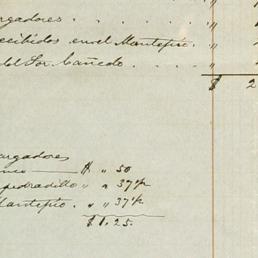 "
rgadores. "
ecibidos en el Montepio. "
del Sor. Cañedo. "
$ 2
argadores
nco $ " 50
pedradillo " " 37½
Montepio. " " 37½
$ 1.25.